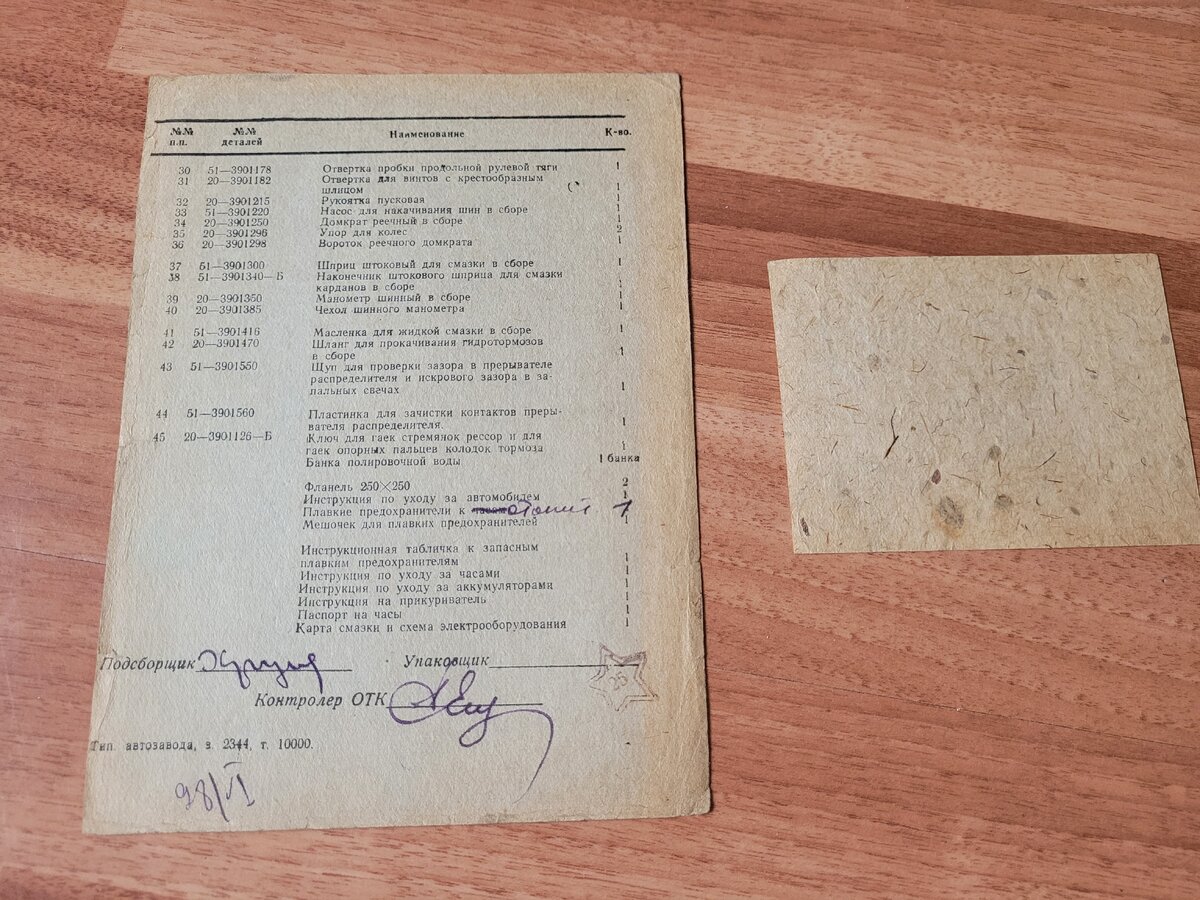 №№ п.п. №№ деталей Наименование К-во.
30 51—3901178 Отвертка пробки продольной рулевой тяги 1
31 20—3901182 Отвертка для винтов с крестообразным
шлицом 1
32 20—3901215 Рукоятка пусковая 1
33 51—3901220 Насос для накачивания шин в сборе 1
34 20—3901250 Домкрат реечный в сборе 1
35 20—3901296 Упор для колес 2
36 20—3901298 Вороток реечного домкрата 1
37 51—3901300 Шприц штоковый для смазки в сборе 1
38 51—3901340—Б Наконечник штокового шприца для смазки
карданов в сборе 1
39 20—3901350 Манометр шинный в сборе 1
40 20—3901385 Чехол шинного манометра 1
41 51—3901416 Масленка для жидкой смазки в сборе 1
42 20—3901470 Шланг для прокачивания гидротормозов
в сборе 1
43 51—3901550 Щуп для проверки зазора в прерывателе
распределителя и искрового зазора в за-
пальных свечах 1
44 51—3901560 Пластинка для зачистки контактов преры-
вателя распределителя. 1
45 20—3901126—Б Ключ для гаек стремянок рессор и для
гаек опорных пальцев колодок тормоза 1
Банка полировочной воды 1 банка
Фланель 250×250 2
Инструкция по уходу за автомобилем 1
Плавкие предохранители к 1
Мешочек для плавких предохранителей 1
Инструкционная табличка к запасным
плавким предохранителям 1
Инструкция по уходу за часами 1
Инструкция по уходу за аккумуляторами 1
Инструкция на прикуриватель 1
Паспорт на часы 1
Карта смазки и схема электрооборудования 1
Подсборщик Упаковщик
25
Контролер ОТК
Тип. автозавода, з. 2344, т. 10000.